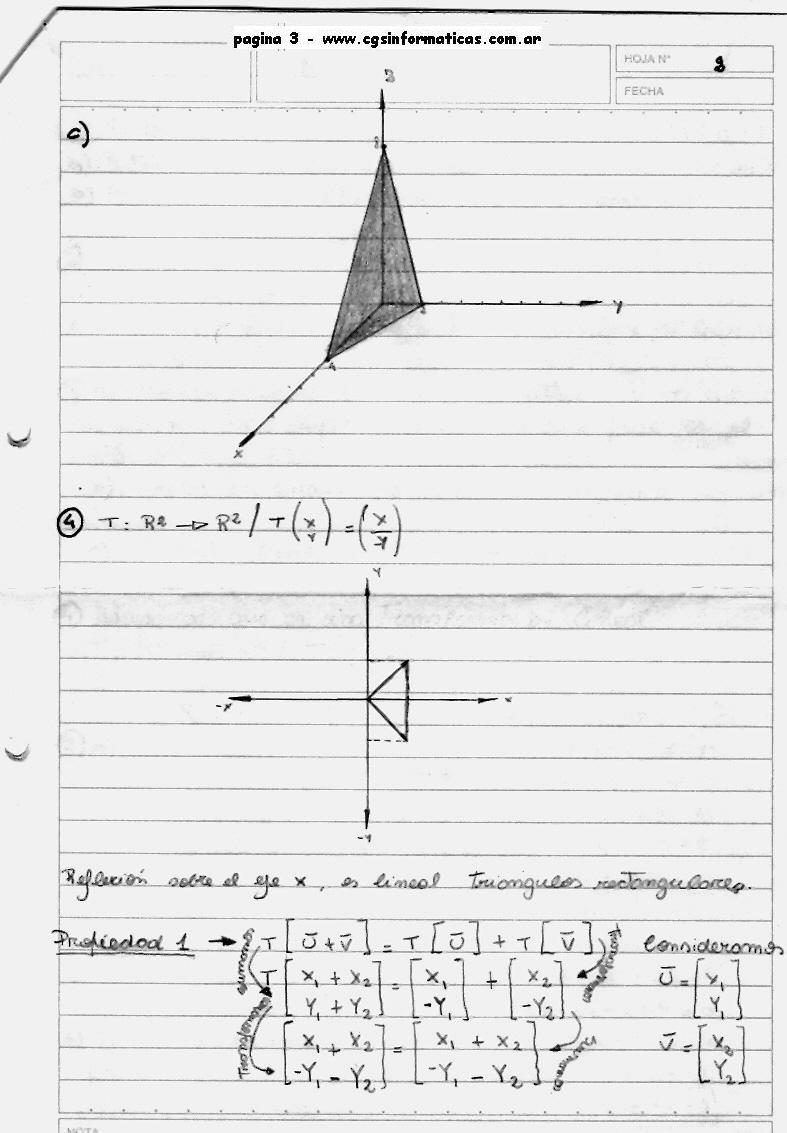 pagina 3 - www.cgsinformaticas.com.ar
HOJA N°
FECHA
c)
Y
4
X
④ T: R² → R² / T (X Y) = (X -Y)
Y
-X
X
-Y
Reflexión sobre el eje X, es lineal triangulos rectangulares.
Propiedad 1 → sumamos T [Ū + V̄] = T [Ū] + T [V̄] Consideramos
T [X₁ + X₂ Y₁ + Y₂] = [X₁ -Y₁] + [X₂ -Y₂] Ū = [X₁ Y₁]
[X₁ + X₂ -Y₁ - Y₂] = [X₁ + X₂ -Y₁ - Y₂] V̄ = [X₂ Y₂]
NOTA